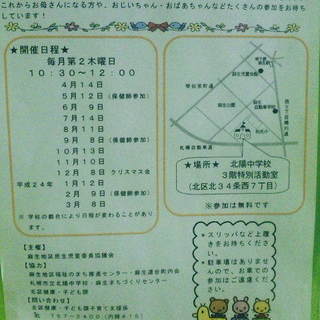 これからお母さんになる方や、おじいちゃん・おばあちゃんなどたくさんの参加をお待ち
しています!
★開催日程★
毎月第2木曜日
10:30〜12:00
4月14日
5月12日(保健師参加)
6月 9日
7月14日
9月 8日(保健師参加)
10月13日
11月10日
12月 8日 クリスマス会
平成24年 1月12日
2月 9日(保健師参加)
3月 8日
※ 学校の都合により日程が変わることがあり
ます。
麻生児童会館
麻生公園
札幌自動車道
★場所★ 北陽中学校
3階特別活動室
(北区北34条西7丁目)
※参加は無料です
【主催】
麻生地区民生児童委員協議会
【協力】
麻生地区福祉のまち推進センター・麻生連合町内会
札幌市立北陽中学校・麻生まちづくりセンター
北区健康・子ども課
【問い合わせ】
北区健康・子ども課子育て支援係
● スリッパなど上履
きをお持ちくださ
い。
● 駐車場はありませ
んので、お車での
参加はご遠慮くだ
さい。